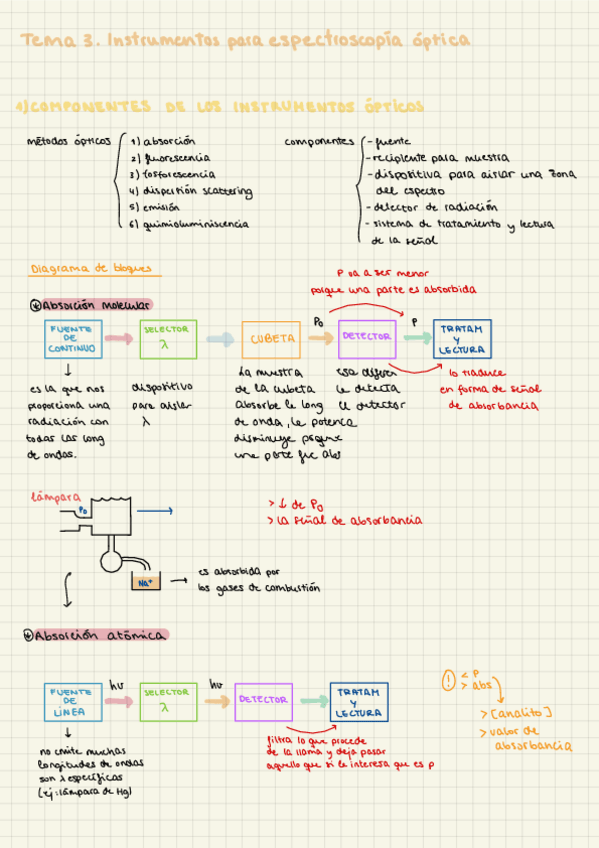 Tema 3. Instrumentos para espectroscopía óptica
1) COMPONENTES DE LOS INSTRUMENTOS ÓPTICOS
métodos ópticos
1) absorción
2) fluorescencia
3) fosforescencia
4) dispersión scattering
5) emisión
6) quimioluminiscencia
componentes
- fuente
- recipiente para muestra
- dispositivo para aislar una zona
del espectro
- detector de radiación
- sistema de tratamiento y lectura
de la señal
Diagrama de bloques
P va a ser menor
porque una parte es absorbida
Absorción molecular
FUENTE
DE
CONTINUO
SELECTOR
λ
CUBETA
P0
DETECTOR
P
TRATAM
Y
LECTURA
es la que nos
proporciona una
radiación con
todas las long
de ondas.
dispositivo
para aislar
λ
La muestra
de la cubeta
absorbe la long
de onda, la potencia
disminuye porque
una parte fue abs
esa
la detecta
el detector
lo traduce
en forma de señal
de absorbancia
lámpara
P0
> ↓ de P0
> la señal de absorbancia
Na+
es absorbida por
los gases de combustión
Absorción atómica
FUENTE
DE
LÍNEA
hν
SELECTOR
λ
hν
DETECTOR
TRATAM
Y
LECTURA
! < P
> abs
> [analito]
> valor de
absorbancia
no emite muchas
longitudes de ondas
son λ específicas
(ej: lámpara de Hg)
filtra lo que procede
de la llama y deja pasar
aquello que si le interesa que es P